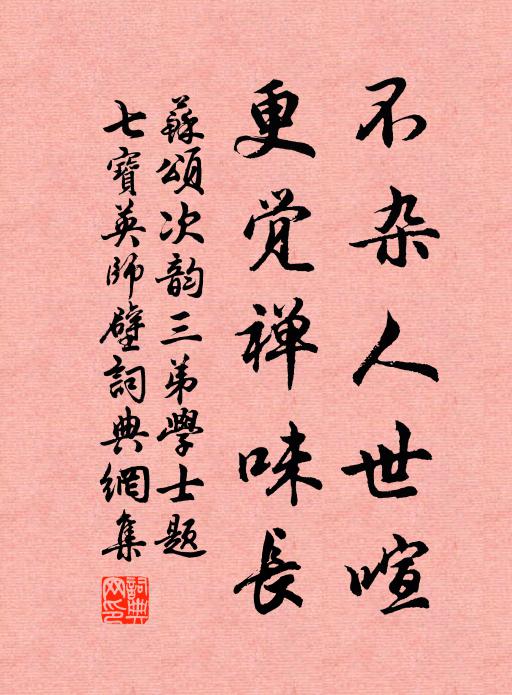 不杂人世喧
更觉禅味長
蘇頌次韵三弟學士题
七寶英師壁詞典網集
詞典网印